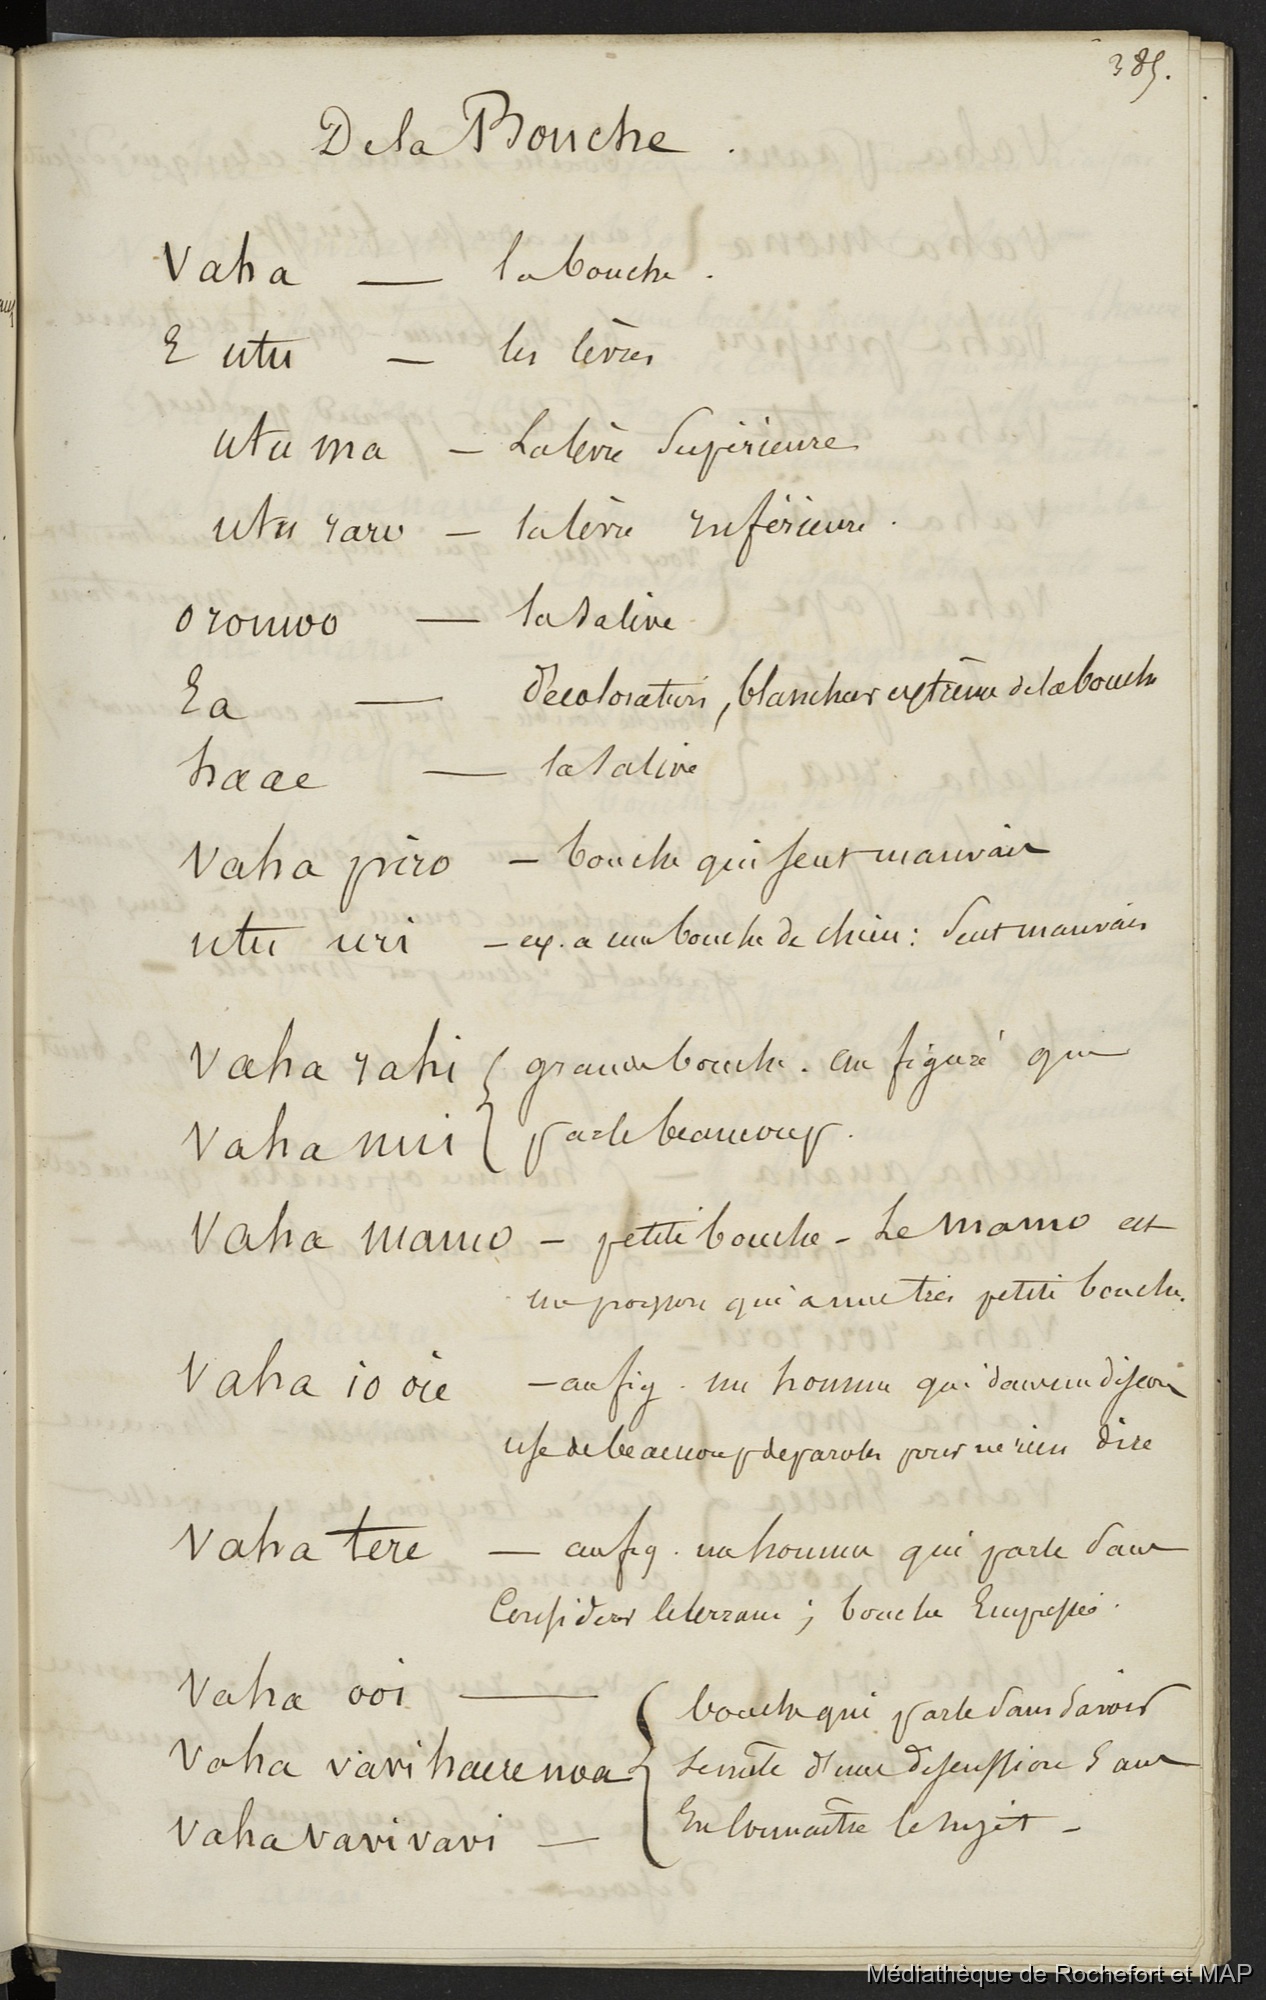 385.
De la Bouche.
Vaha — la bouche.
E utu — les lèvres
utu ma — La lèvre Supérieure
utu raro — la lèvre inférieure.
oromoo — la Salive
Ea — décoloration, blancheur extrême de la bouche
haae — la Salive
Vaha piro — bouche qui sent mauvais
utu uri — ex. a une bouche de chien : Sent mauvais
Vaha rahi { grande bouche. au figuré que
Vaha nui } parle beaucoup.
Vaha mamo — petite bouche - Le mamo est
un poisson qui a une très petite bouche.
Vaha io oie — au fig. un homme qui dans un discours
use de beaucoup de paroles pour ne rien dire
Vaha tere — au fig. un homme qui parle sans
Considérer le terrain ; bouche Empressée.
Vaha ooi — { bouche qui parle sans savoir
Vaha vavi haere noa Se mêle d'une discussion Sans
Vaha vavi vavi — En connaître le sujet -
Médiathèque de Rochefort et MAP